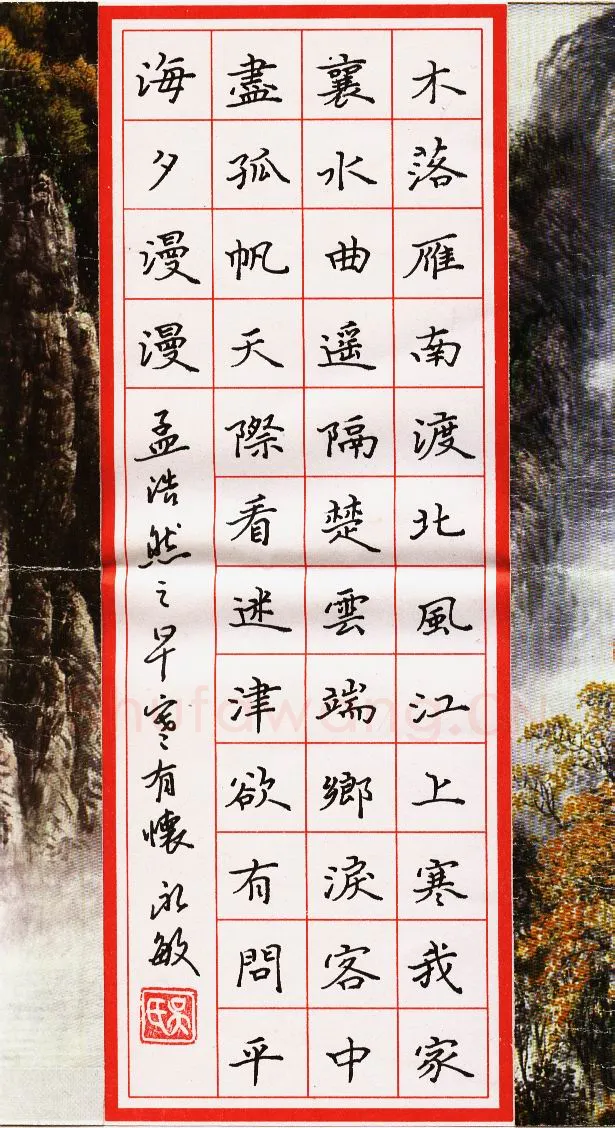 木落雁南渡北風江上寒我家
襄水曲遥隔楚雲端鄉淚客中
盡孤帆天際看迷津欲有問平
海夕漫漫
孟浩然之早寒有懷 永敏
吳氏
Shufawang.Cn